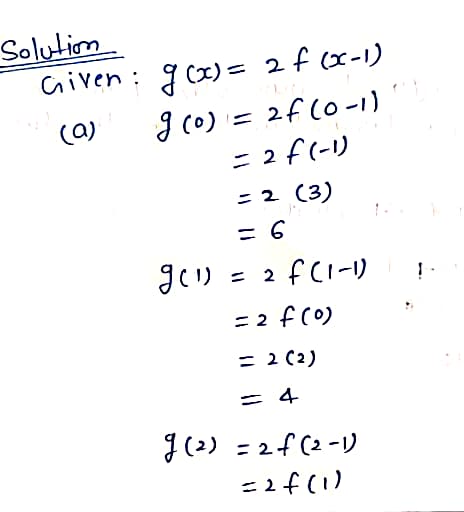 Solution
Given: g(x) = 2f(x-1)
(a) g(0) = 2f(0-1)
= 2f(-1)
= 2 (3)
= 6
g(1) = 2f(1-1)
= 2f(0)
= 2(2)
= 4
g(2) = 2f(2-1)
= 2f(1)